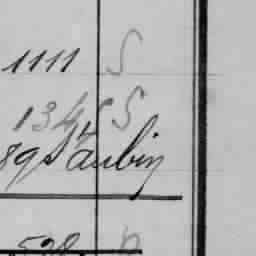 1111 S
134 S
89 S aubin
528 n